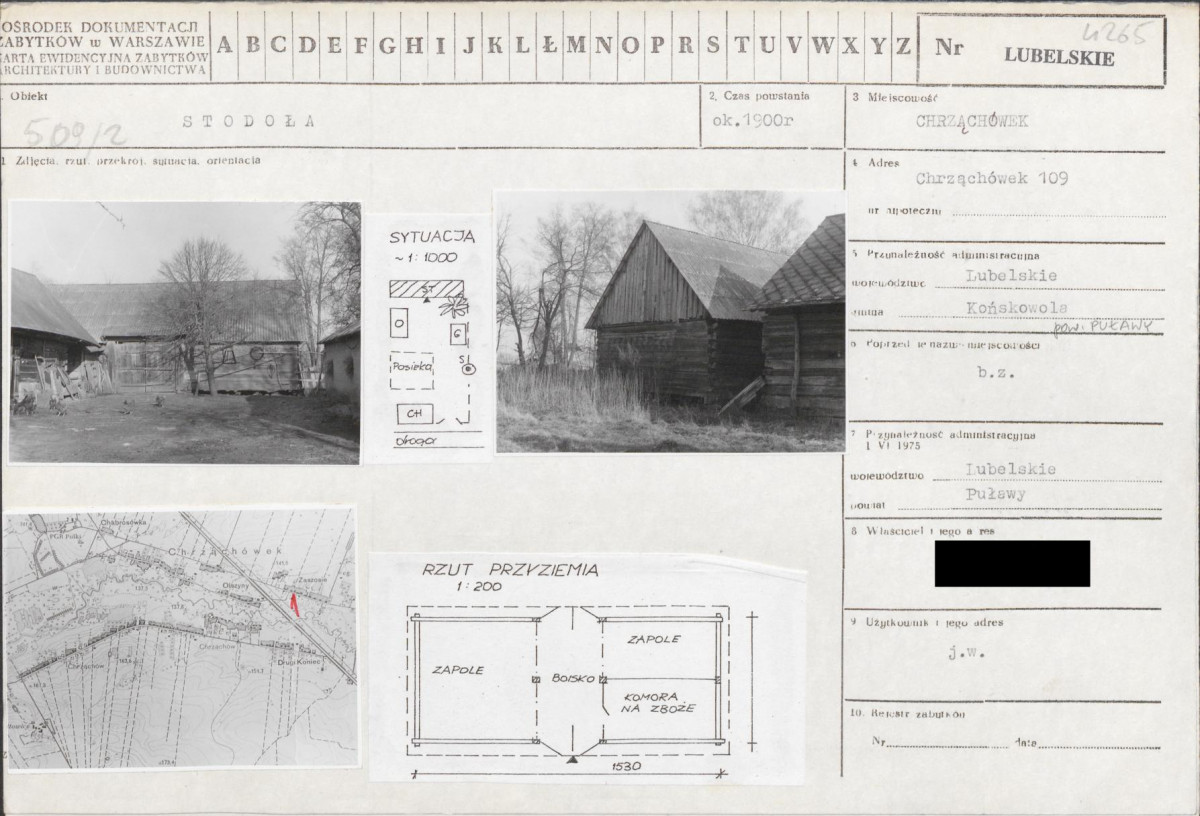 OŚRODEK DOKUMENTACJI
ZABYTKÓW w WARSZAWIE
KARTA EWIDENCYJNA ZABYTKÓW
ARCHITEKTURY I BUDOWNICTWA
A B C D E F G H I J K L Ł M N O P R S T U V W X Y Z
Nr LUBELSKIE
4265
Obiekt
509/2
STODOŁA
2. Czas powstania
ok.1900r
3 Miejscowość
CHRZĄCHÓWEK
1 Zdjęcia, rzut, przekrój, sytuacja, orientacja
4 Adres
Chrząchówek 109
nr hipoteczny
5 Przynależność administracyjna
województwo Lubelskie
gmina Końskowola
pow. PUŁAWY
6 Poprzednie nazwy miejscowości
b.z.
7 Przynależność administracyjna
1 VI 1975
województwo Lubelskie
powiat Puławy
8 Właściciel i jego adres
9 Użytkownik i jego adres
j.w.
10. Rejestr zabytków
Nr data
SYTUACJA
~ 1:1000
ST
O
G
Pasieka
S
CH
droga
Chabrosówka
PGR Pulki
Chrząchówek
Zaszosie
Olszyny
Chrząchów
Chrząchów
Drugi Koniec
RZUT PRZYZIEMIA
1:200
ZAPOLE
BOISKO
ZAPOLE
KOMORA
NA ZBOŻE
1530